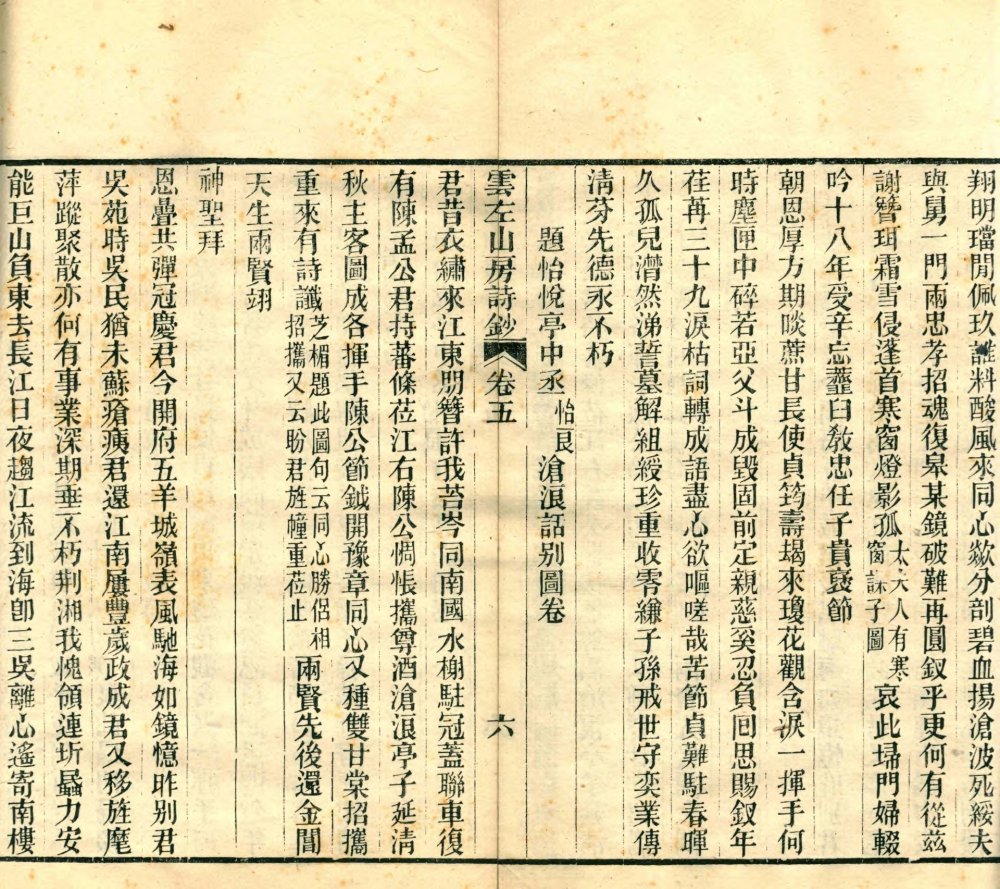 翔明璫閒佩玖誰料酸風來同心歘分剖碧血揚滄波死綏夫
與舅一門兩忠孝招魂復皋某鏡破難再圓釵乎更何有從茲
謝簪珥霜雪侵蓬首寒窗燈影孤太夫人有寒窗課子圖哀此埽門婦輟
吟十八年受辛忘虀臼敎忠任子貴襃節
朝恩厚方期啖蔗甘長使貞筠壽朅來瓊花觀含淚一揮手何
時塵匣中碎若亞父斗成毀固前定親慈奚忍負囘思賜釵年
荏苒三十九淚枯詞轉成語盡心欲嘔嗟哉苦節貞難駐春暉
久孤兒潸然涕誓墓解組綬珍重收零縑子孫戒世守奕業傳
淸芬先德永不朽
題怡悅亭中丞怡良滄浪話别圖卷
雲左山房詩鈔 卷五 六
君昔衣繡來江東朋簪許我苔岑同南國水榭駐冠蓋聯車復
有陳孟公君持蕃條莅江右陳公惆悵攜尊酒滄浪亭子延淸
秋主客圖成各揮手陳公節鉞開豫章同心又種雙甘棠招攜
重來有詩讖芝楣題此圖句云同心勝侶相招攜又云盼君旌幢重莅止兩賢先後還金閶
天生兩賢翊
神聖拜
恩疊共彈冠慶君今開府五羊城嶺表風馳海如鏡憶昨别君
吳苑時吳民猶未蘇瘡痍君還江南屢豐歲政成君又移旌麾
萍蹤聚散亦何有事業深期垂不朽荆湘我愧領連圻蝨力安
能巨山負東去長江日夜趨江流到海卽三吳離心遙寄南樓